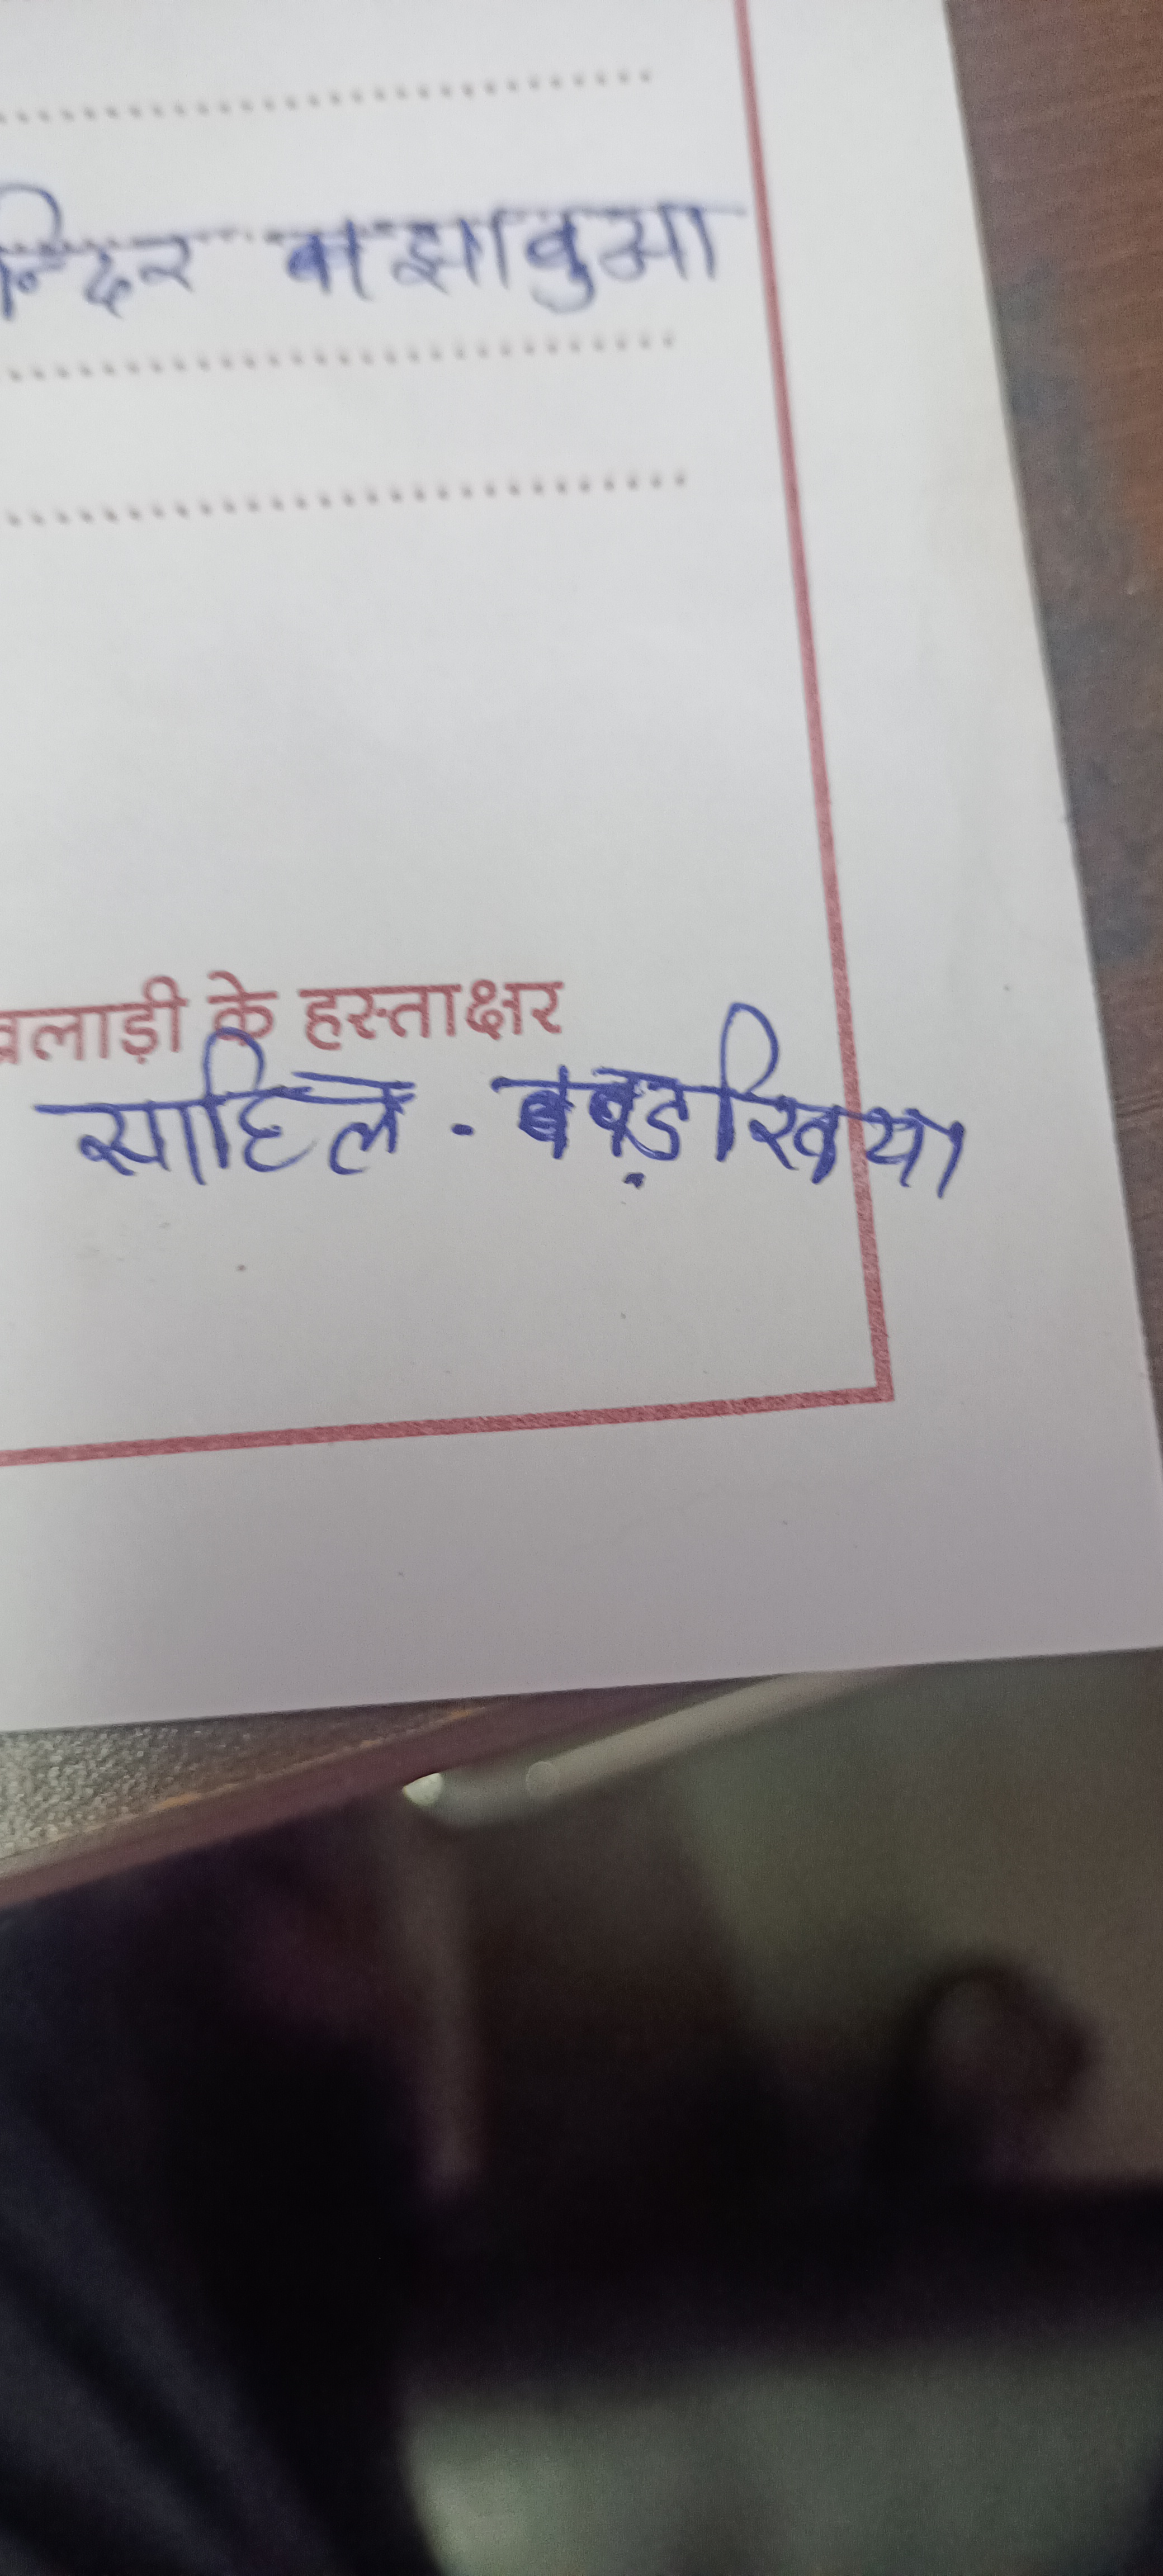 न्दिर झाबुआ
खिलाड़ी के हस्ताक्षर
साहिल - बबड़िखिया